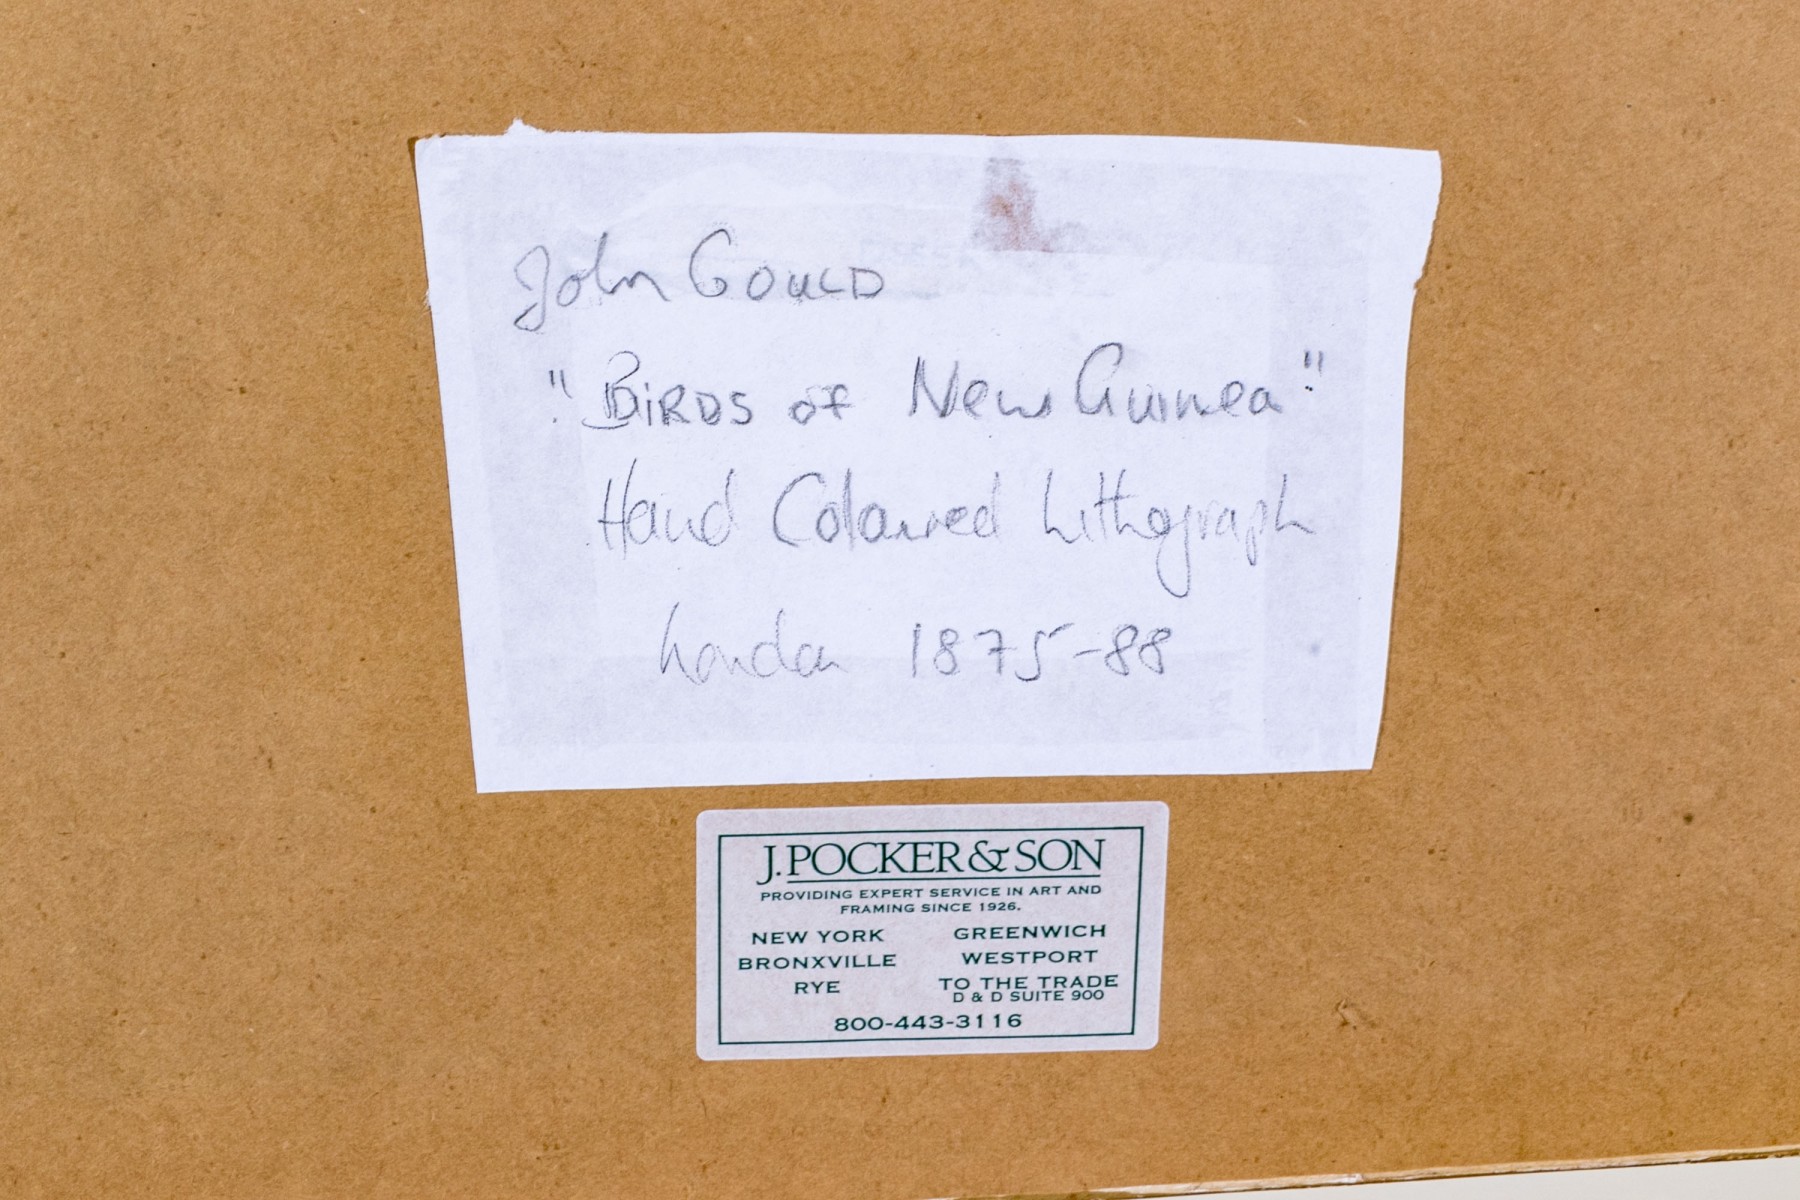 John GOULD
"BIRDS OF New Guinea"
Hand Coloured Lithograph
London 1875-88
J. POCKER & SON
PROVIDING EXPERT SERVICE IN ART AND
FRAMING SINCE 1926.
NEW YORK
BRONXVILLE
RYE
GREENWICH
WESTPORT
TO THE TRADE
D & D SUITE 900
800-443-3116